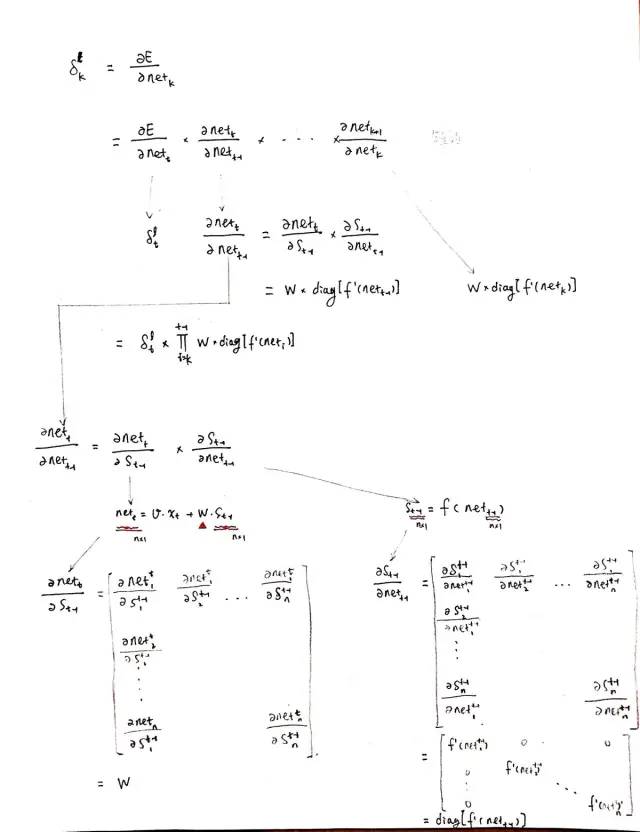 δ_k^l = ∂E/∂net_k
= ∂E/∂net_t × ∂net_t/∂net_{t-1} × · · · · × ∂net_{k+1}/∂net_k
δ_t^l ∂net_t/∂net_{t-1} = ∂net_t/∂S_{t-1} × ∂S_{t-1}/∂net_{t-1}
= W × diag[f'(net_{t-1})] W × diag[f'(net_k)]
= δ_t^l × ∏_{i=k}^{t-1} W × diag[f'(net_i)]
∂net_t/∂net_{t-1} = ∂net_t/∂S_{t-1} × ∂S_{t-1}/∂net_{t-1}
net_t = U·X_t + W·S_{t-1}
n×1 n×1
S_{t-1} = f(net_{t-1})
n×1 n×1
∂net_t/∂S_{t-1} = [ ∂net_1^t/∂S_1^{t-1} ∂net_1^t/∂S_2^{t-1} ... ∂net_1^t/∂S_n^{t-1}
∂net_2^t/∂S_1^{t-1}
⋮
∂net_n/∂S_1^{t-1} ∂net_n^t/∂S_n^{t-1} ]
= W
∂S_{t-1}/∂net_{t-1} = [ ∂S_1^{t-1}/∂net_1^{t-1} ∂S_1^{t-1}/∂net_2^{t-1} ... ∂S_1^{t-1}/∂net_n^{t-1}
∂S_2^{t-1}/∂net_1^{t-1}
⋮
∂S_n^{t-1}/∂net_1^{t-1} ∂S_n^{t-1}/∂net_n^{t-1} ]
= [ f'(net_1^{t-1}) 0 0
0 f'(net_2^{t-1})
⋮
0 ... f'(net_n^{t-1}) ]
= diag[f'(net_{t-1})]